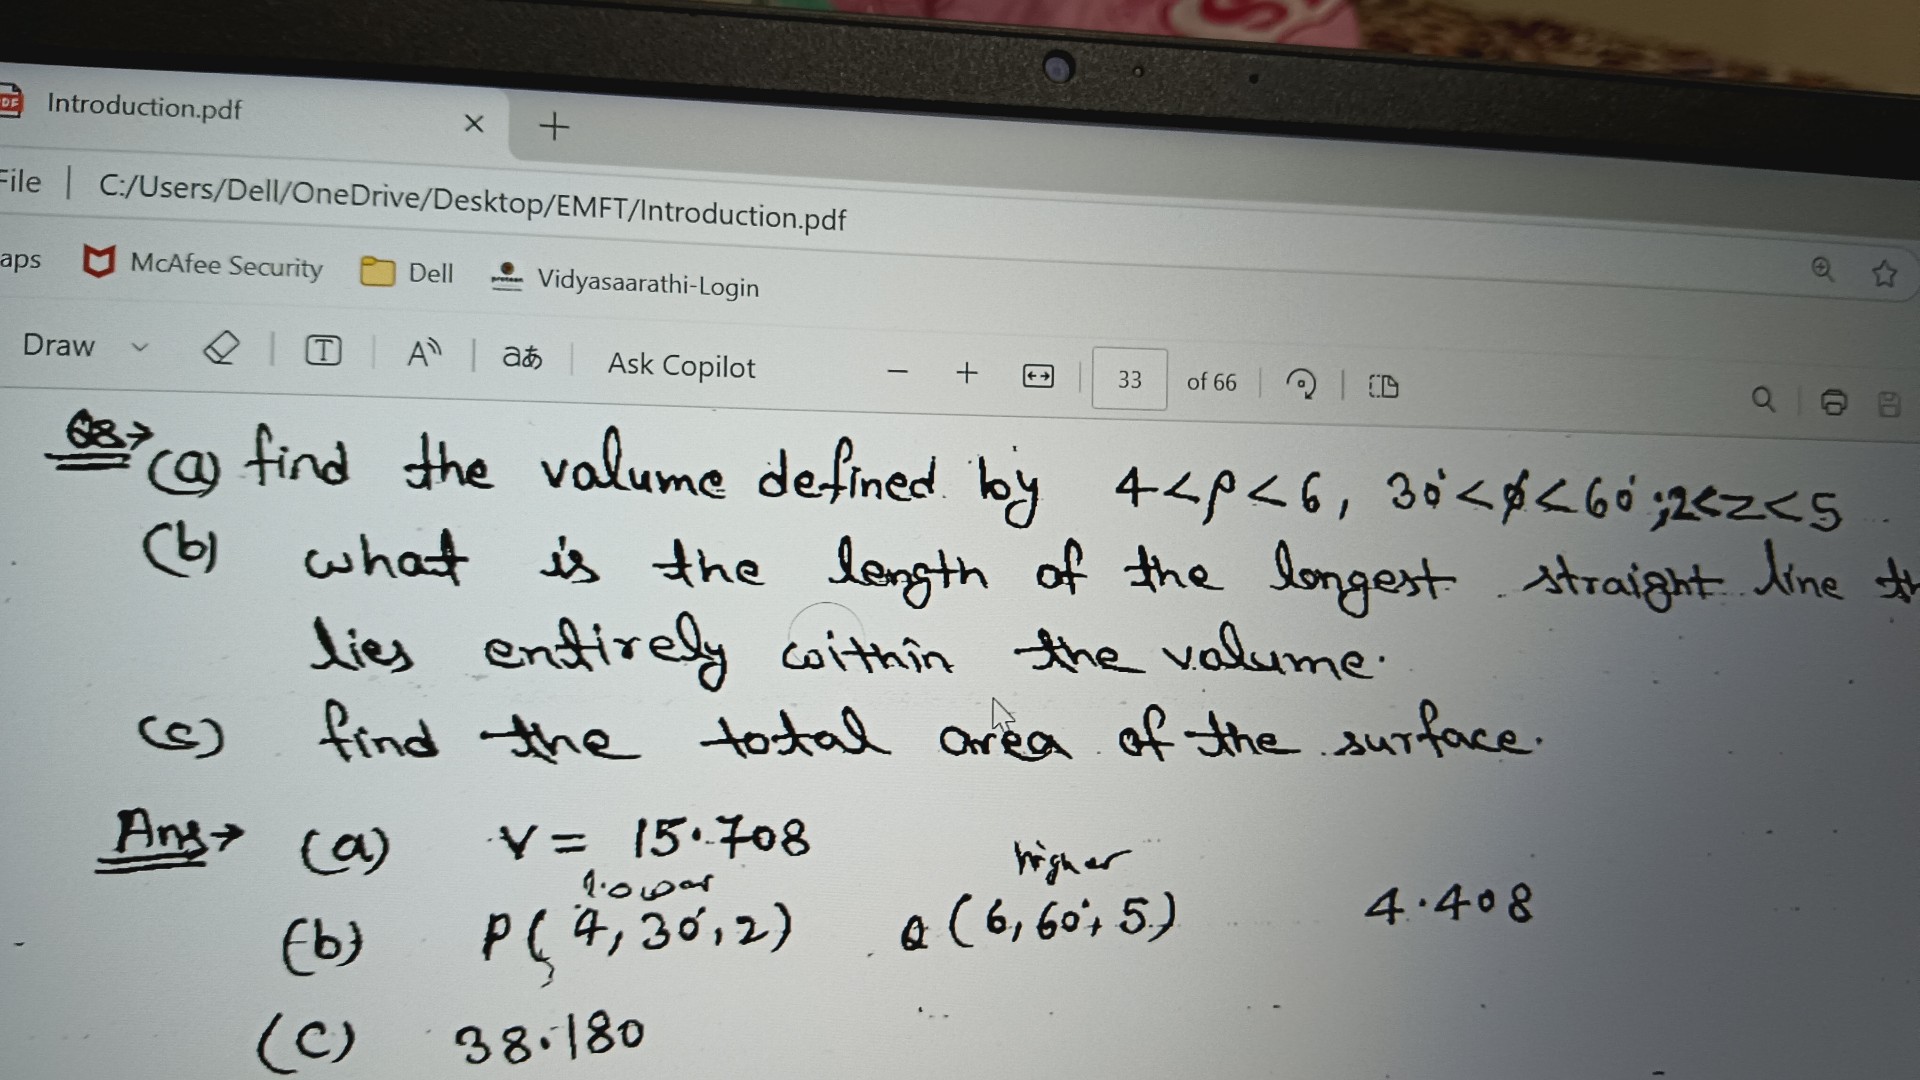 Introduction.pdf
File | C:/Users/Dell/OneDrive/Desktop/EMFT/Introduction.pdf
aps McAfee Security Dell Vidyasaarathi-Login
Draw T A aあ Ask Copilot − + 33 of 66
Q8→ (a) find the valume defined by 4<ρ<6, 30°<φ<60°;2<z<5
(b) what is the length of the longest straight line th
lies entirely within the valume.
(c) find the total area of the surface.
Ans→ (a) V = 15.708
lower higher
(b) P(4,30°,2) Q(6,60°,5) 4.408
(C) 38.180